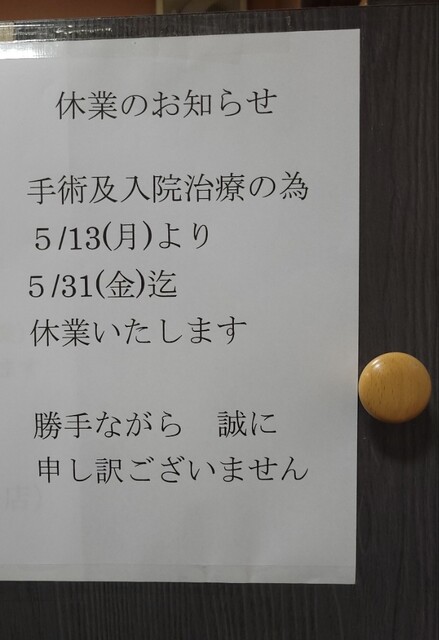 休業のお知らせ
手術及入院治療の為
５/13(月)より
５/31(金)迄
休業いたします
勝手ながら　誠に
申し訳ございません